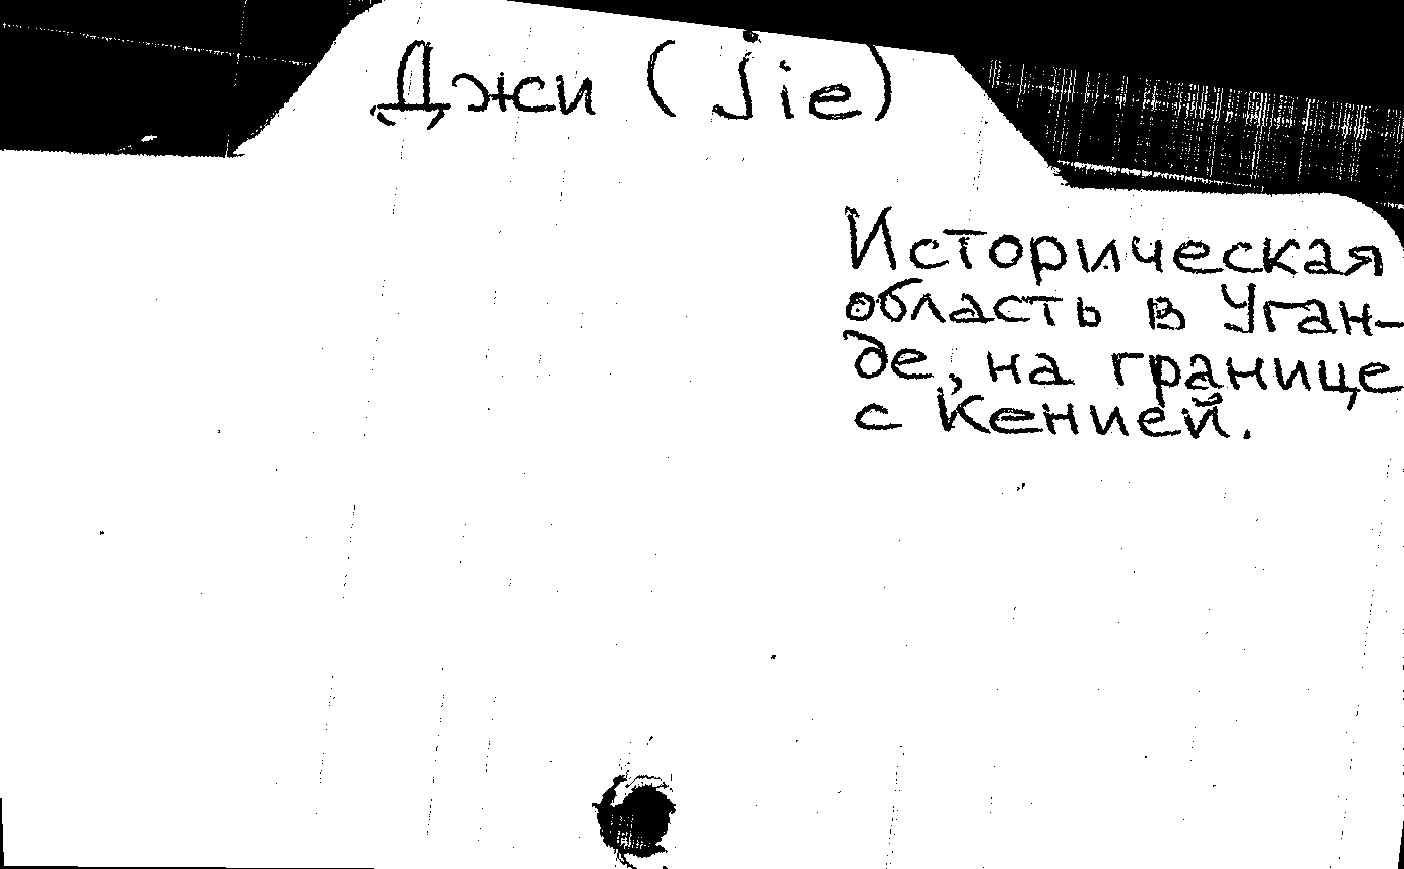 Джи (Jie)
Историческая
область в Уган-
де, на границе
с Кенией.